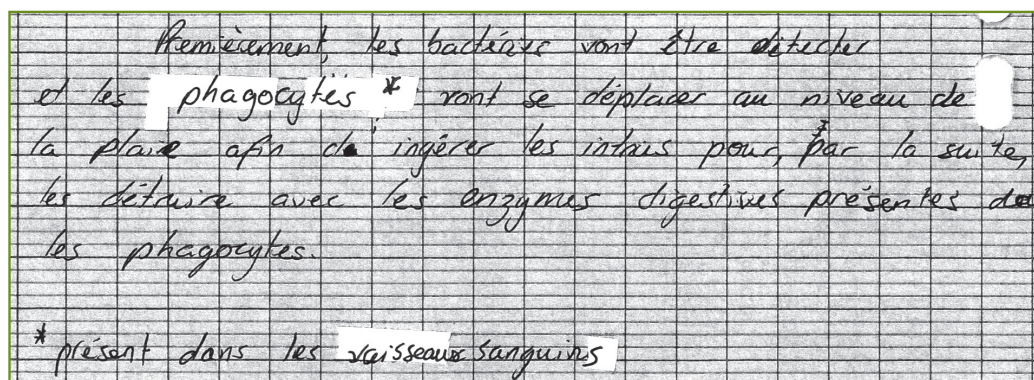 Premièrement, les bactéries vont être détecter
et les phagocytes * vont se déplacer au niveau de
la plaie afin de ingérer les intrus pour, par la suite,
les détruire avec les enzymes digestives présentes
les phagocytes.
* présent dans les vaisseaux sanguins